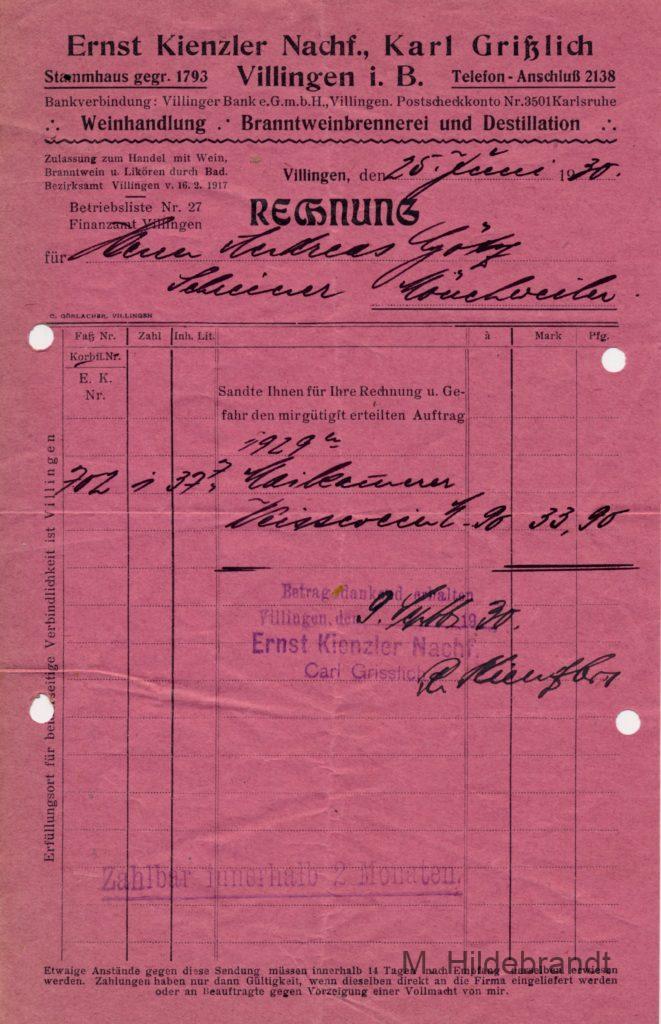 Ernst Kienzler Nachf., Karl Grißlich
Stammhaus gegr. 1793 Villingen i. B. Telefon-Anschluß 2138
Bankverbindung: Villinger Bank e.G.m.b.H., Villingen. Postscheckkonto Nr. 3501 Karlsruhe
Weinhandlung Branntweinbrennerei und Destillation
Zulassung zum Handel mit Wein,
Branntwein u. Likören durch Bad.
Bezirksamt Villingen v. 16. 2. 1917
Villingen, den 25. Juni 1930.
Betriebsliste Nr. 27
Finanzamt Villingen
RECHNUNG
für Herrn Andreas Götz
Schreiner Mönchweiler.
C. GÖRLACHER, VILLINGEN
Faß Nr. Zahl Inh. Lit. à Mark Pfg.
Korbfl. Nr.
E. K.
Nr.
Sandte Ihnen für Ihre Rechnung u. Ge-
fahr den mir gütigst erteilten Auftrag
1929er
702 1 37 Maikammerer
Weisswein -90 33,90
Betrag dankend erhalten
Villingen, den 9. 19 30.
Ernst Kienzler Nachf.
Carl Grisslich
Kienzler
Erfüllungsort für beiderseitige Verbindlichkeit ist Villingen
Zahlbar innerhalb 2 Monaten.
M. Hildebrandt
Etwaige Anstände gegen diese Sendung müssen innerhalb 14 Tagen nach Empfang derselben erwiesen
werden. Zahlungen haben nur dann Gültigkeit, wenn dieselben direkt an die Firma eingeliefert werden
oder an Beauftragte gegen Vorzeigung einer Vollmacht von mir.